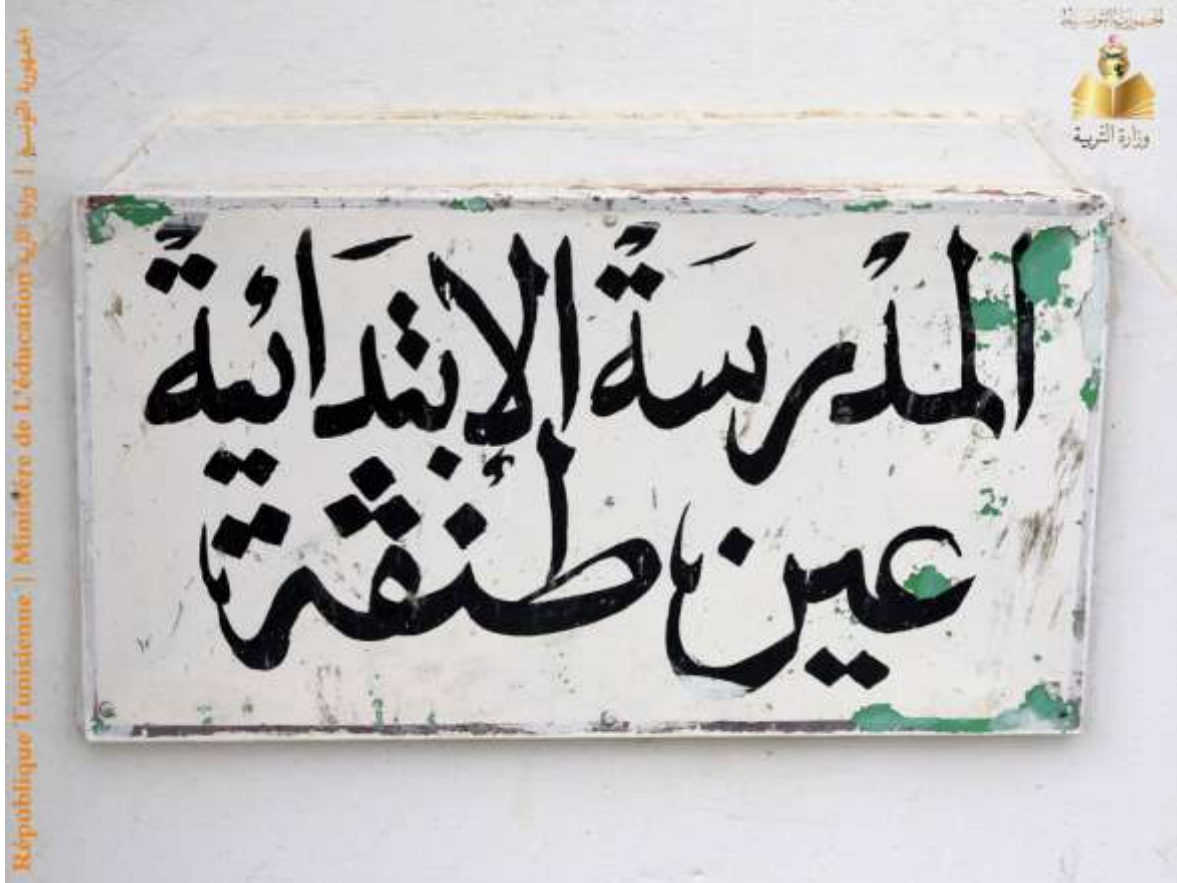 الجمهورية التونسية
وزارة التربية
المدْرسَةْ الإبتدَائيةْ
عين طنڨة
République Tunisienne | Ministére de L'éducation وزارة التربية | الجمهورية التونسية